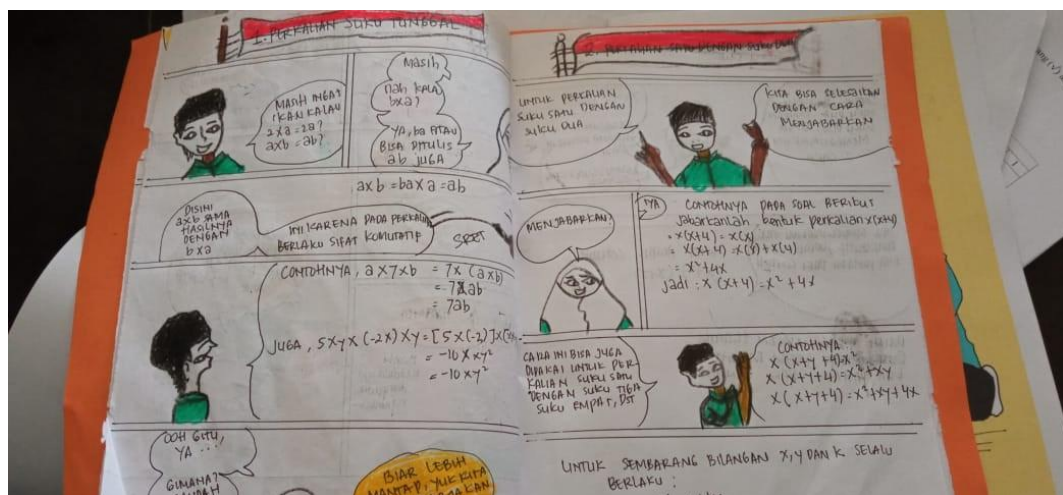 1. PERKALIAN SUKU TUNGGAL
MASIH INGAT
KAN KALAU
2xa = 2a?
axb = ab?
Masih
Nah KALA
bxa?
YA, ba ATAU
BISA DITULIS
ab JUGA
axb = baxa = ab
DISINI
axb SAMA
HASILNYA
DENGAN
bxa
INI KARENA PADA PERKALIAN
BERLAKU SIFAT KOMUTATIF
SRET
CONTOHNYA, ax7xb = 7x (axb)
= 7xab
= 7ab
JUGA, 5xyx(-2x)xy = [5x(-2)]x
= -10 x xy²
= -10 xy²
OOH GITU,
YA ...
GIMANA?
BIAR LEBIH
MANTAP, YUK KITA
2. PERKALIAN SATU DENGAN SUKU DUA
UNTUK PERKALIAN
SUKU SATU DENGAN
SUKU DUA
KITA BISA SELESAIKAN
DENGAN CARA
MENJABARKAN
MENJABARKAN
YA
CONTOHNYA PADA SOAL BERIKUT
Jabarkanlah, bentuk perkalian x(x+4)
= x(x+4) = x(x)
= x(x+4) = x(x) + x(4)
= x²+4x
Jadi : x (x+4) = x² + 4x
CARA INI BISA JUGA
DIPAKAI UNTUK PER
KALIAN SUKU SATU
DENGAN SUKU TIGA
SUKU EMPAT, DST
CONTOHNYA:
x (x+y+4)=x²
x (x+y+4) = x²+xy
x (x+y+4) = x²+xy+4x
UNTUK SEMBARANG BILANGAN x,y DAN K SELALU
BERLAKU :